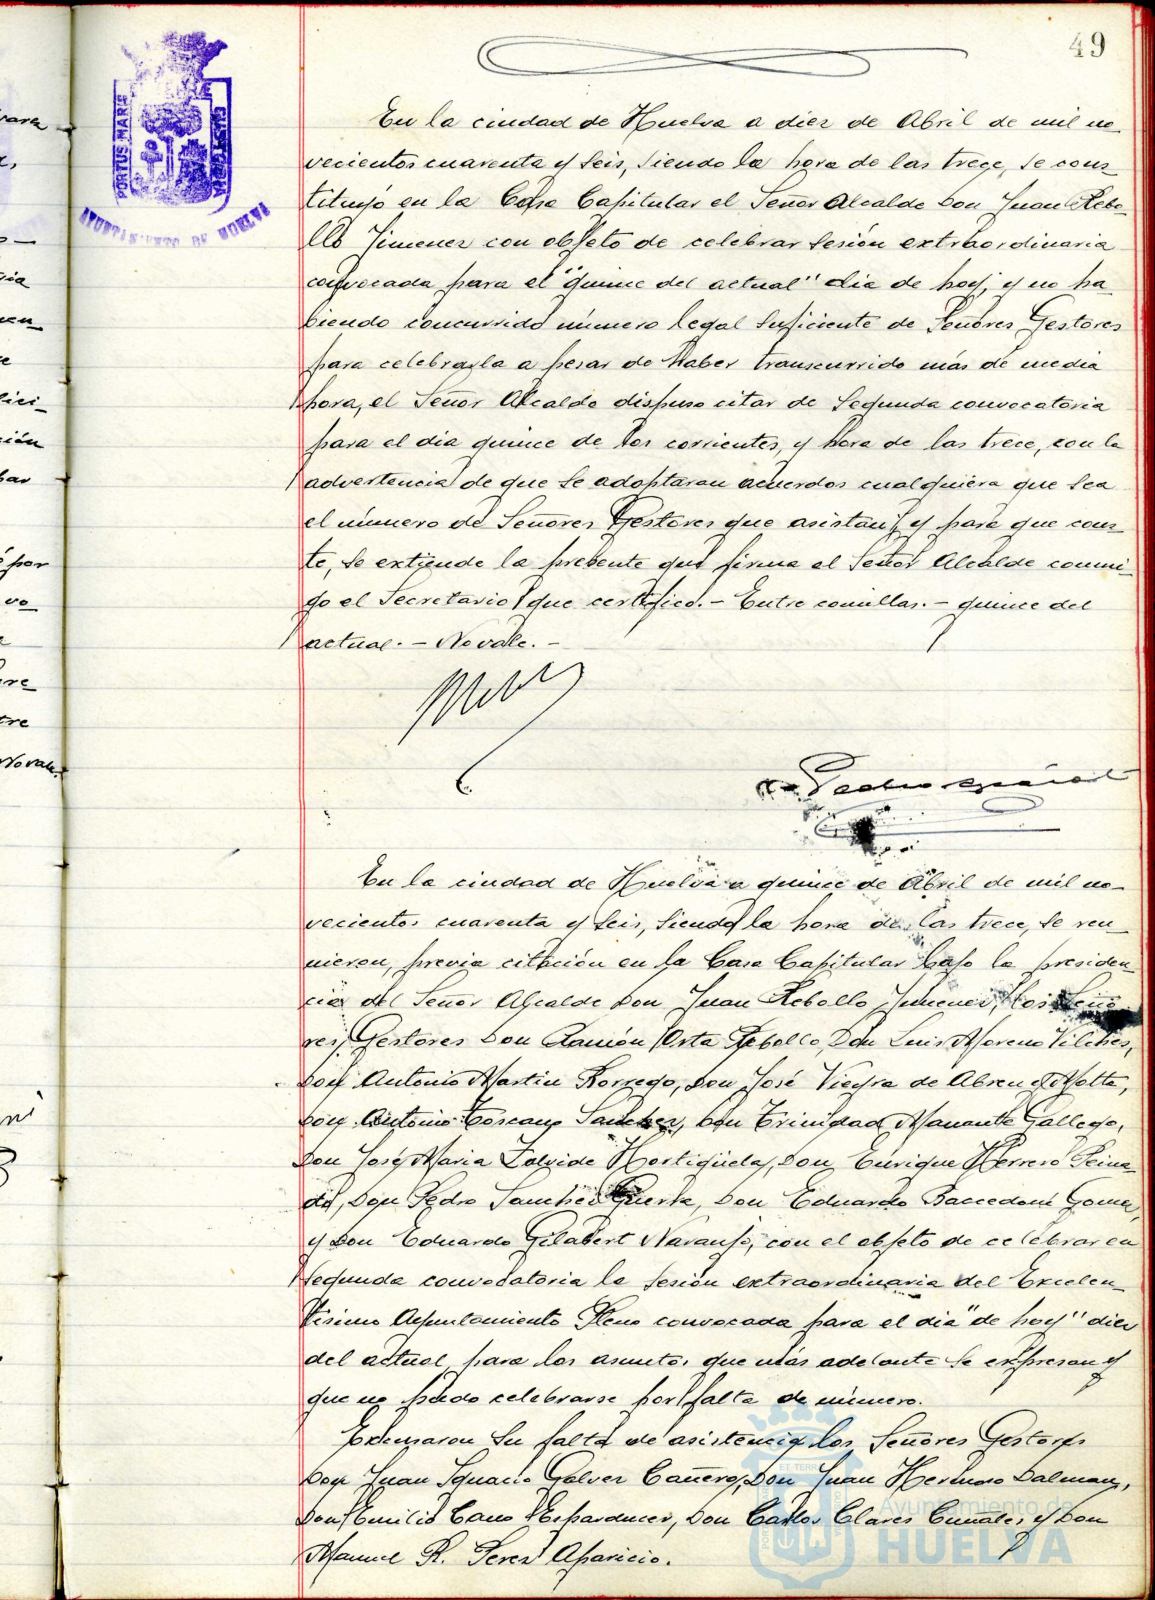 49
PORTUS MARIS
AYUNTAMIENTO DE HUELVA
En la ciudad de Huelva a diez de Abril de mil no-
vecientos cuarenta y seis, siendo la hora de las trece, se cons-
tituyó en la Casa Capitular el Señor Alcalde Don Juan Rebo-
llo Jimenez con objeto de celebrar sesión extraordinaria
convocada para el "quince del actual" dia de hoy, y no ha-
biendo concurrido número legal suficiente de Señores Gestores
para celebrarla a pesar de haber transcurrido más de media
hora, el Señor Alcalde dispuso citar de segunda convocatoria
para el dia quince de los corrientes, y hora de las trece, con la
advertencia de que se adoptaran acuerdos cualquiera que sea
el número de Señores Gestores que asistan, y para que cons-
te, se extiende la presente que firma el Señor Alcalde conmi-
go el Secretario que certifico.- Entre comillas.- quince del
actual.- No vale.-
En la ciudad de Huelva a quince de Abril de mil no-
vecientos cuarenta y seis, siendo la hora de las trece, se reu-
nieron, previa citación en la Casa Capitular bajo la presiden-
cia del Señor Alcalde Don Juan Rebollo Jimenez, los Seño-
res Gestores Don Ramón Orta Rebollo, Don Luis Moreno Vilches,
Don Antonio Martin Borrego, Don José Vieyra de Abreu y Motta,
Don Antonio Toscano Sanchez, Don Trinidad Manante Gallego,
Don José Maria Zalvide Hortigüela, Don Enrique Herrero Peina-
do, Don Pedro Sanchez Guerra, Don Eduardo Gomez,
y Don Eduardo Gilabert Naranjo, con el objeto de celebrar en
segunda convocatoria la sesión extraordinaria del Excelen-
tisimo Ayuntamiento Pleno convocada para el dia "de hoy" diez
del actual, para los asuntos que más adelante se expresan y
que no pudo celebrarse por falta de número.
Excusaron su falta de asistencia los Señores Gestores
Don Juan Ignacio Galvez Cañero, Don Juan Hermoso Dalman,
Don Emilio Cano, Don Carlos Clares y Don
Manuel R. Perez Aparicio.
Ayuntamiento de
HUELVA